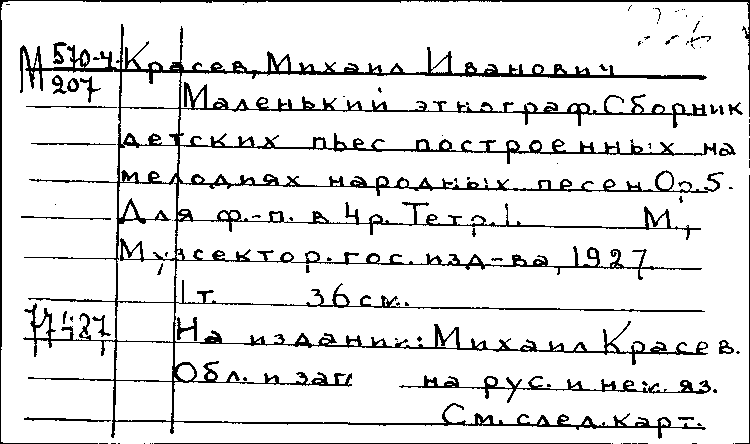 М 570-4 Красев, Михаил Иванович
207 Маленький этнограф. Сборник
детских пьес построенных на
мелодиях народных песен. Op. 5.
Для ф.-п. в 4 р. Тетр. 1. М.,
Музсектор. гос. изд-ва, 1927.
1 т. 36 см.
77427 На издании: Михаил Красев.
Обл. и загл на рус. и нем. яз.
См. след. карт.